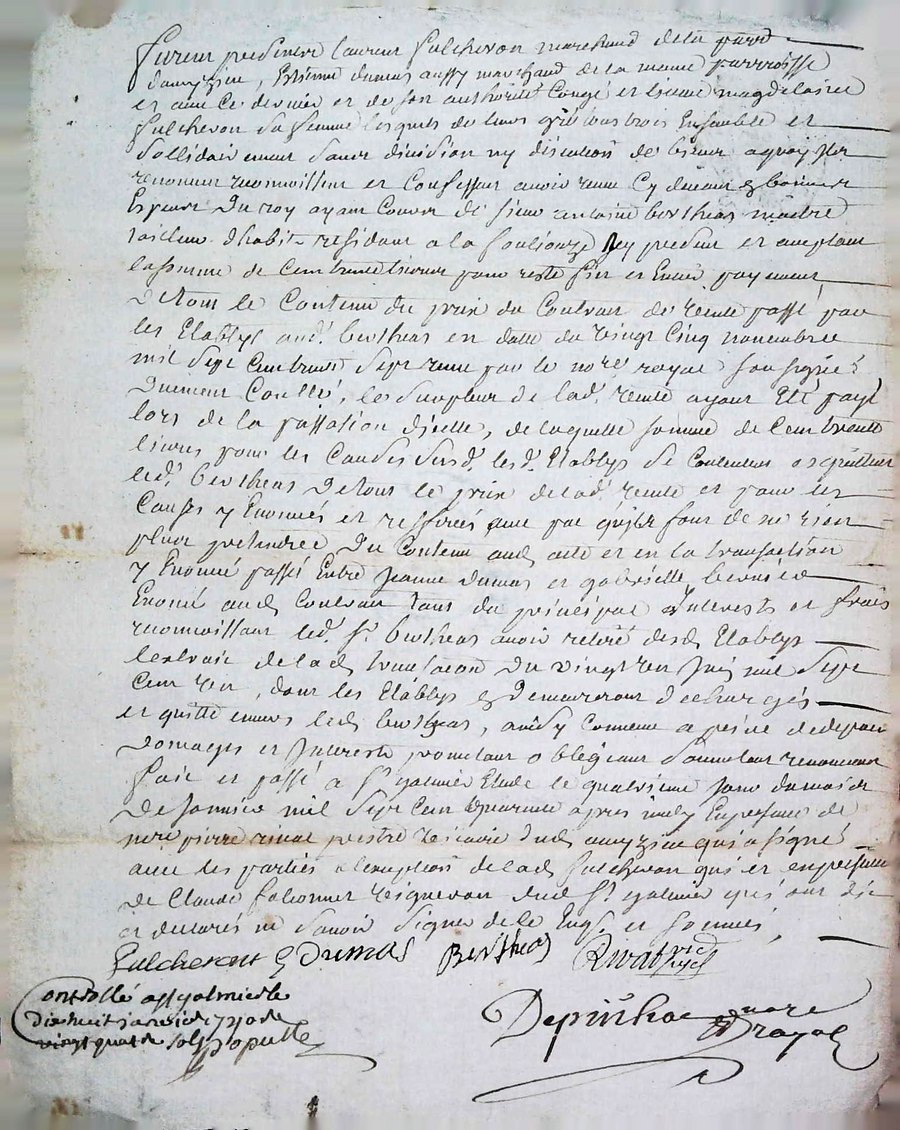 Furent presents laurent fulcheron marchand de la parr
d'auvezieu, Estienne dumas aussy marchand de la meme parroisse
et avec ce dernier et de son authorité Congé et licence magdelaine
fulcheron sa femme lesquels de leurs gré tous trois Ensemble et
sollidairement sans division ny discution de biens a quoy
renoncent reconnoissent et Confessent avoir reçu Cy devant En bonnes
Especes Du roy ayant Cours de sieur antoine bertheas maitre
tailleur d'habits residant a la fouliouze Icy present et acceptant
la somme de Cent trente livres pour reste fin et Entier payement
De tout le Contenu du prix du Contrat de vente passé par
les Etablys aud. bertheas en datte du vingt Cinq novembre
mil sept Cent trente sept reçu par le nore royal soussigné
Duement Conllé, le surplus de lad. vente ayant Eté payé
lors de la passation d'icelle, de laquelle somme de Cent trente
livres pour les Causes susd. lesd. Etablys se Contentent acquittent
led. bertheas De tout le prix de lad. vente et pour les
Causes y Enoncés et resservés avec pac de ne rien
plus pretendre Du Contenu aud. acte et en la transaction
y Enoncé passé Entre Jeanne dumas et gabrielle bernier
Enoncé aud. Contrat tant du principal Interests et frais
reconnoissant led. Sr. bertheas avoir retiré desd. Etablys
l'extrait de lad. transaction Du vingt un Juin mil sept
Cent un, dont les Etablys En Demeureront dechargés
et quitte envers led. bertheas, ainsy Convenu a peine de depens
Domages et Interests promettant obligeant soumettant renonceant
fait et passé a St. galmier Etude le quatrieme jour du mois
De Janvier mil sept Cent quarante apres midy En presence de
mre pierre rivat prestre vicaire dud. auvezieu qui a signé
avec les parties a l'exception de lad. fulcheron qui et en presence
de Claude falconnet vigneron dud. St. galmier qui ont dit
et declarés ne Savoir Signer de ce Enqs. et sommés
fulcheront E Dumas Bertheas Rivat
Controllé a St galmier le
dix huit janvier 1740 R
vingt quatre sols
nore
Royal